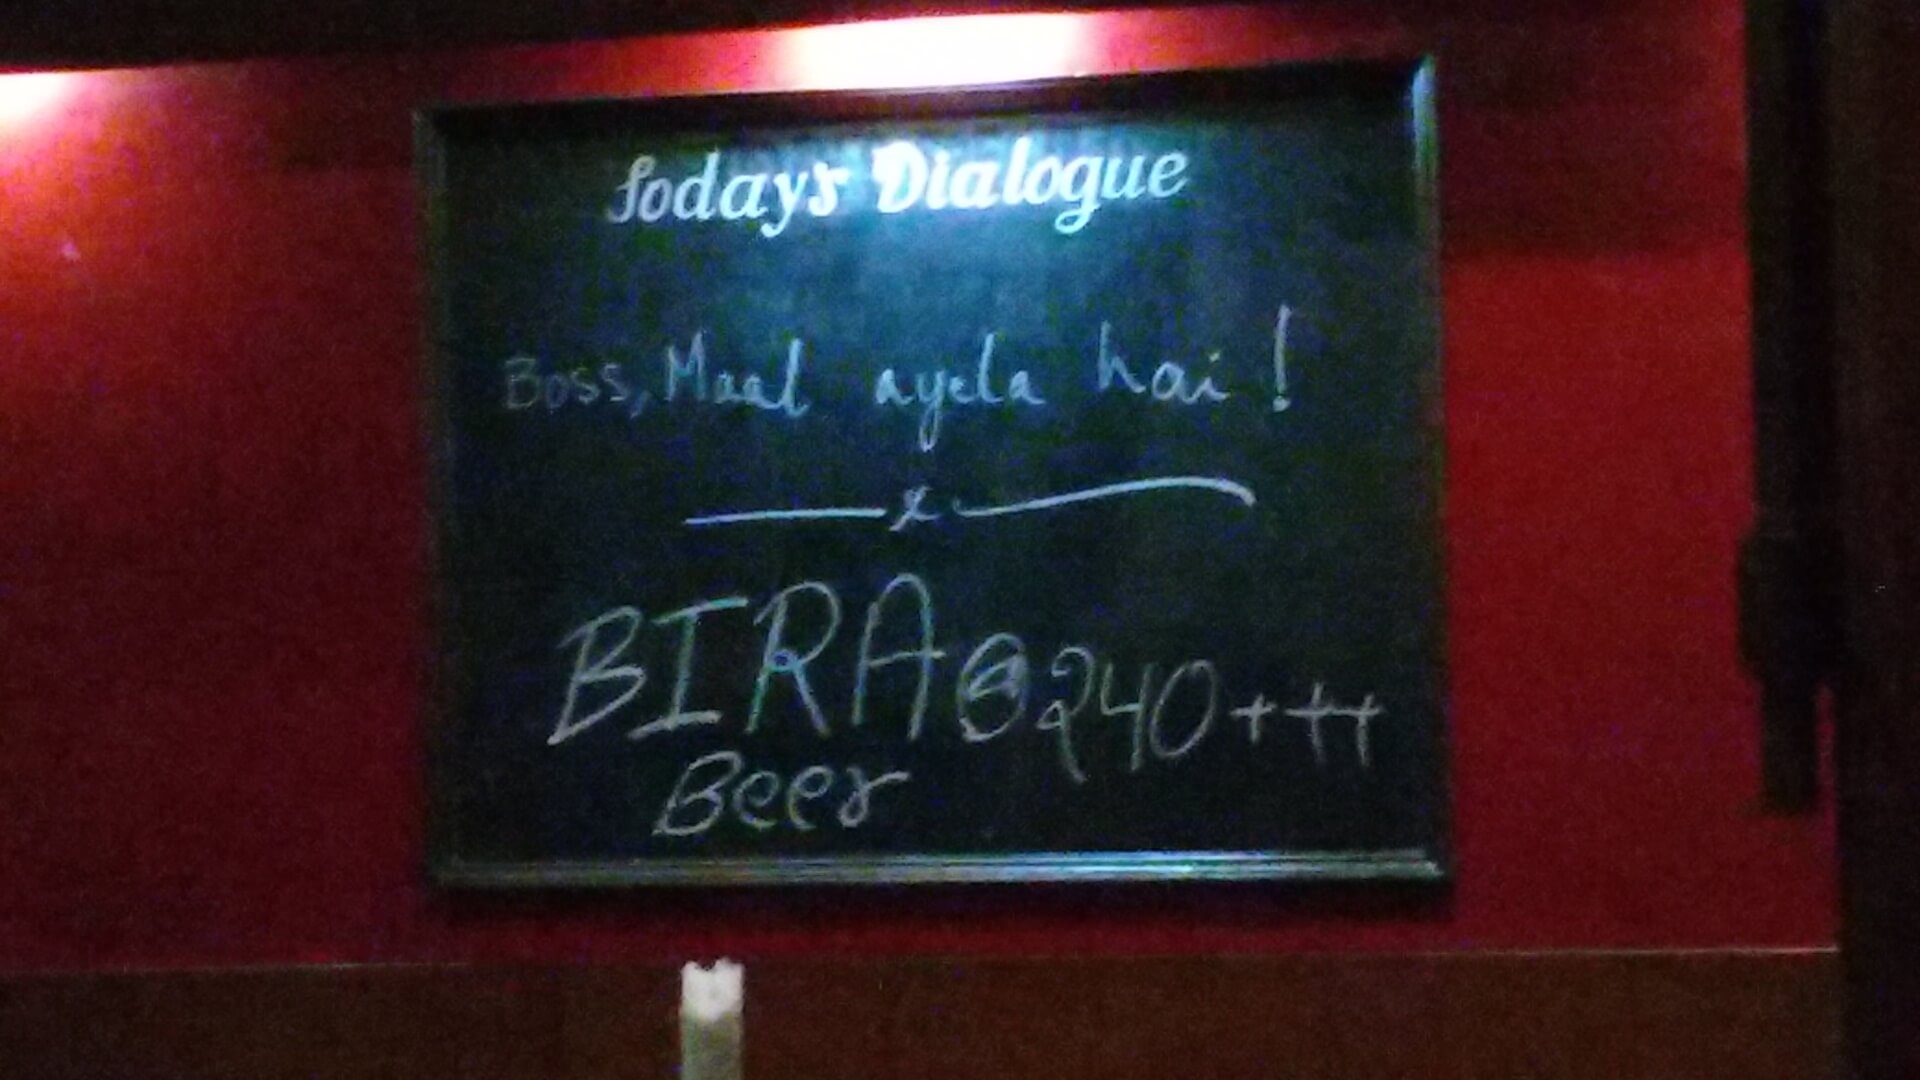 Today's Dialogue
Boss, Maal ayela hai!
x
BIRA @ 240+++
Beer